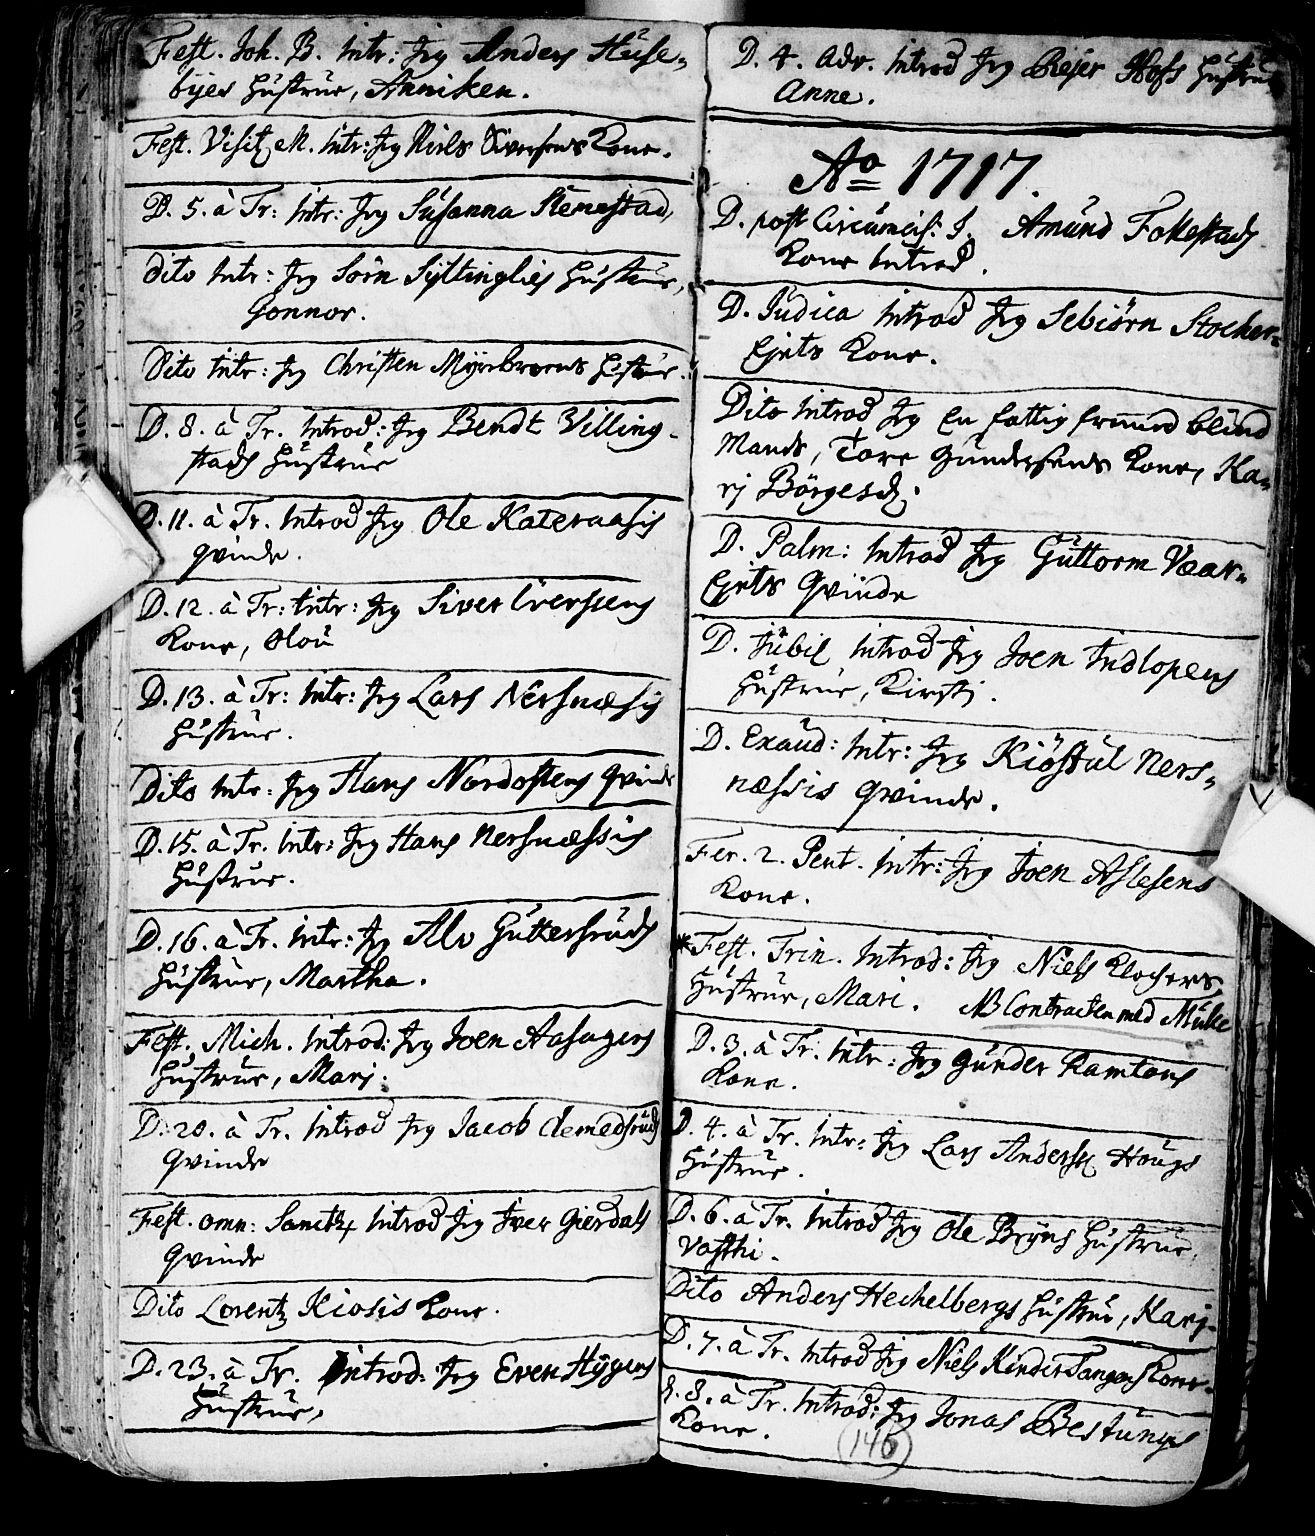 Fest. Joh. B. Intr: Jeg Anders Huse-
byes Hustrue, Anniken.
Fest. Visit. M. Intr: Jeg Niels Siversens Kone.
D. 5. à Tr: Intr: Jeg Susanna Stenestad,
Dito Intr: Jeg Sörn Syltinglies Hustrue,
Gonnor.
Dito Intr: Jeg Christen Myrebraatens Hustrue.
D. 8. à Tr. Introd: Jeg Bendt Villing-
stads Hustrue
D. 11. à Tr. Introd Jeg Ole Kateraasis
Qvinde.
D. 12. à Tr: Intr: Jeg Siver Iversens
Kone, Olou
D. 13. à Tr: Intr: Jeg Lars Nersnæsis
Hustrue.
Dito Intr: Jeg Hans Nordostens Qvinde
D. 15. à Tr. Intr: Jeg Hans Nersnæssis
Hustrue.
D. 16. à Tr. Intr: Jeg Alv Guttersruds
Hustrue, Martha.
Fest. Mich. Introd: Jeg Joen Aasagers
Hustrue, Marj.
D. 20. à Tr. Introd Jeg Jacob Clemedsruds
Qvinde
Fest. omn: Sanct. Introd Jeg Iver Gierdals
Qvinde
Dito Lorentz Kiosis Kone.
D. 23. à Tr. Introd: Jeg Even Hygens
Hustrue,
D. 4. Adv. Introd Jeg Hofs Hustrue
Anne.
Ao 1717.
D. post Circumcis: J. Amund Follestads
Kone Introd.
D. Judica Introd Jeg Sebiörn Stocker-
Ejets Kone.
Dito Introd Jeg En fattig fremmed blind
Mands, Tore Gundersens Kone, Ka-
rj Börgesd.
D. Palm: Introd Jeg Guttorm Vaar-
Ejets Qvinde
D. Jubil Introd Jeg Joen Indlopens
Hustrue, Kirstj.
D. Exaud: Intr: Jeg Kiöstul Ners-
næssis Qvinde.
Fer. 2. Pent. Intr: Jeg Joen Aslesens
Kone.
* Fest. Trin. Introd: Jeg Niels Klockers
Hustrue, Mari. NB Contracten med Mülle
D. 3. à Tr. Intr: Jeg Gunder Ramtons
Kone.
D. 4. à Tr. Intr: Jeg Lars Anders. Hougs
Hustrue.
D. 6. à Tr. Introd Jeg Ole Bryns Hustrue,
Vasthi.
Dito Anders Hechelbergs Hustrue, Karj.
D. 7. à Tr. Introd Jeg Niels Kinder Tangens Kone.
D. 8. à Tr. Introd: Jeg Jonas Bestunges
Kone.
146